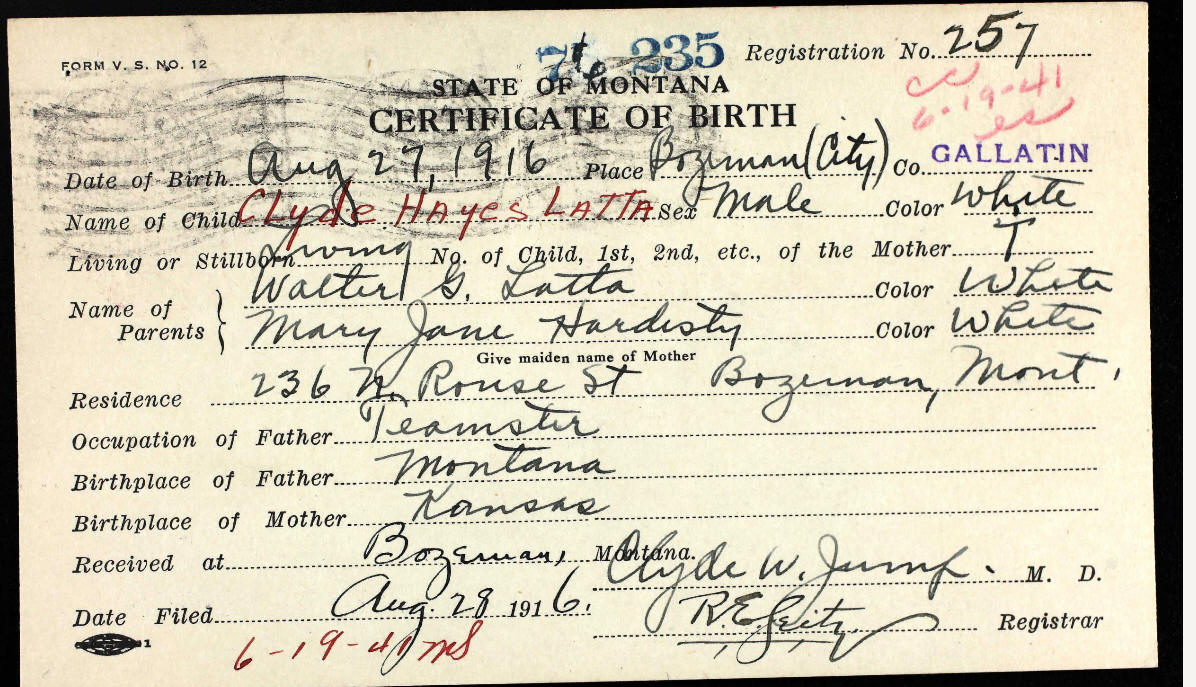 FORM V. S. NO. 12
235 Registration No. 257
STATE OF MONTANA
CERTIFICATE OF BIRTH
6-19-41
Date of Birth Aug 27, 1916 Place Bozeman (City) Co. GALLATIN
Name of Child Clyde HAYES LATTA Sex Male Color White
Living or Stillborn Living No. of Child, 1st, 2nd, etc., of the Mother
Name of Parents } Walter G. Latta Color White
Mary Jane Hardesty Color White
Give maiden name of Mother
Residence 236 N. Rouse St Bozeman, Mont.
Occupation of Father Teamster
Birthplace of Father Montana
Birthplace of Mother Kansas
Received at Bozeman, Montana. Clyde W. Jump. M. D.
Date Filed Aug. 28 1916. R.E. Seitz Registrar
1
6-19-41